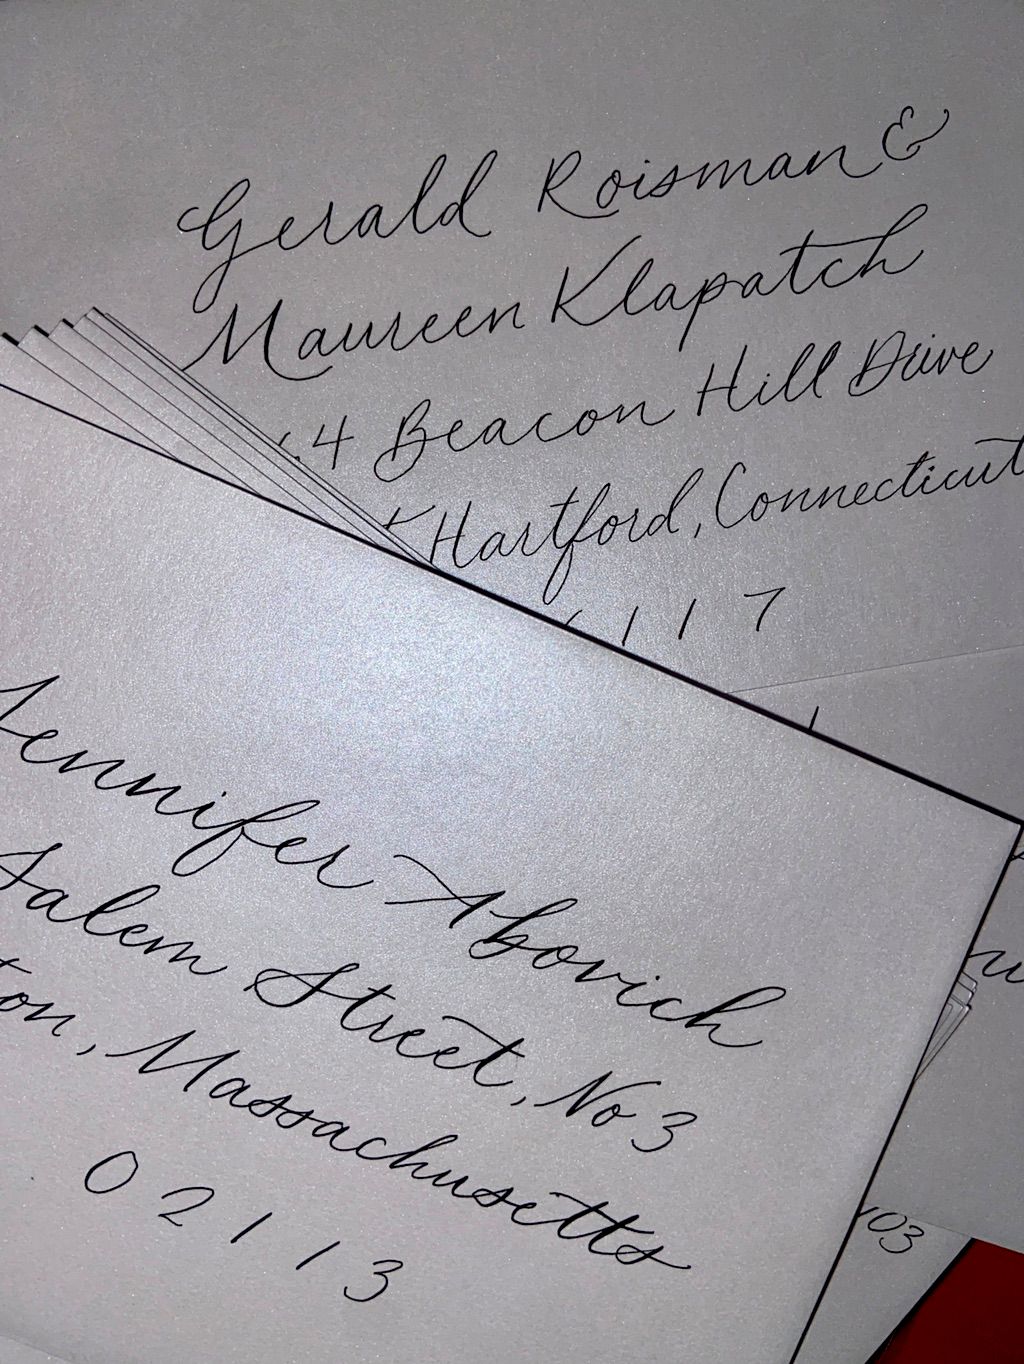 Gerald Roisman &
Maureen Klapatch
4 Beacon Hill Drive
Hartford, Connecticut
1 1 7
Jennifer Abovich
Salem Street, No 3
ton, Massachusetts
0 2 1 1 3
103